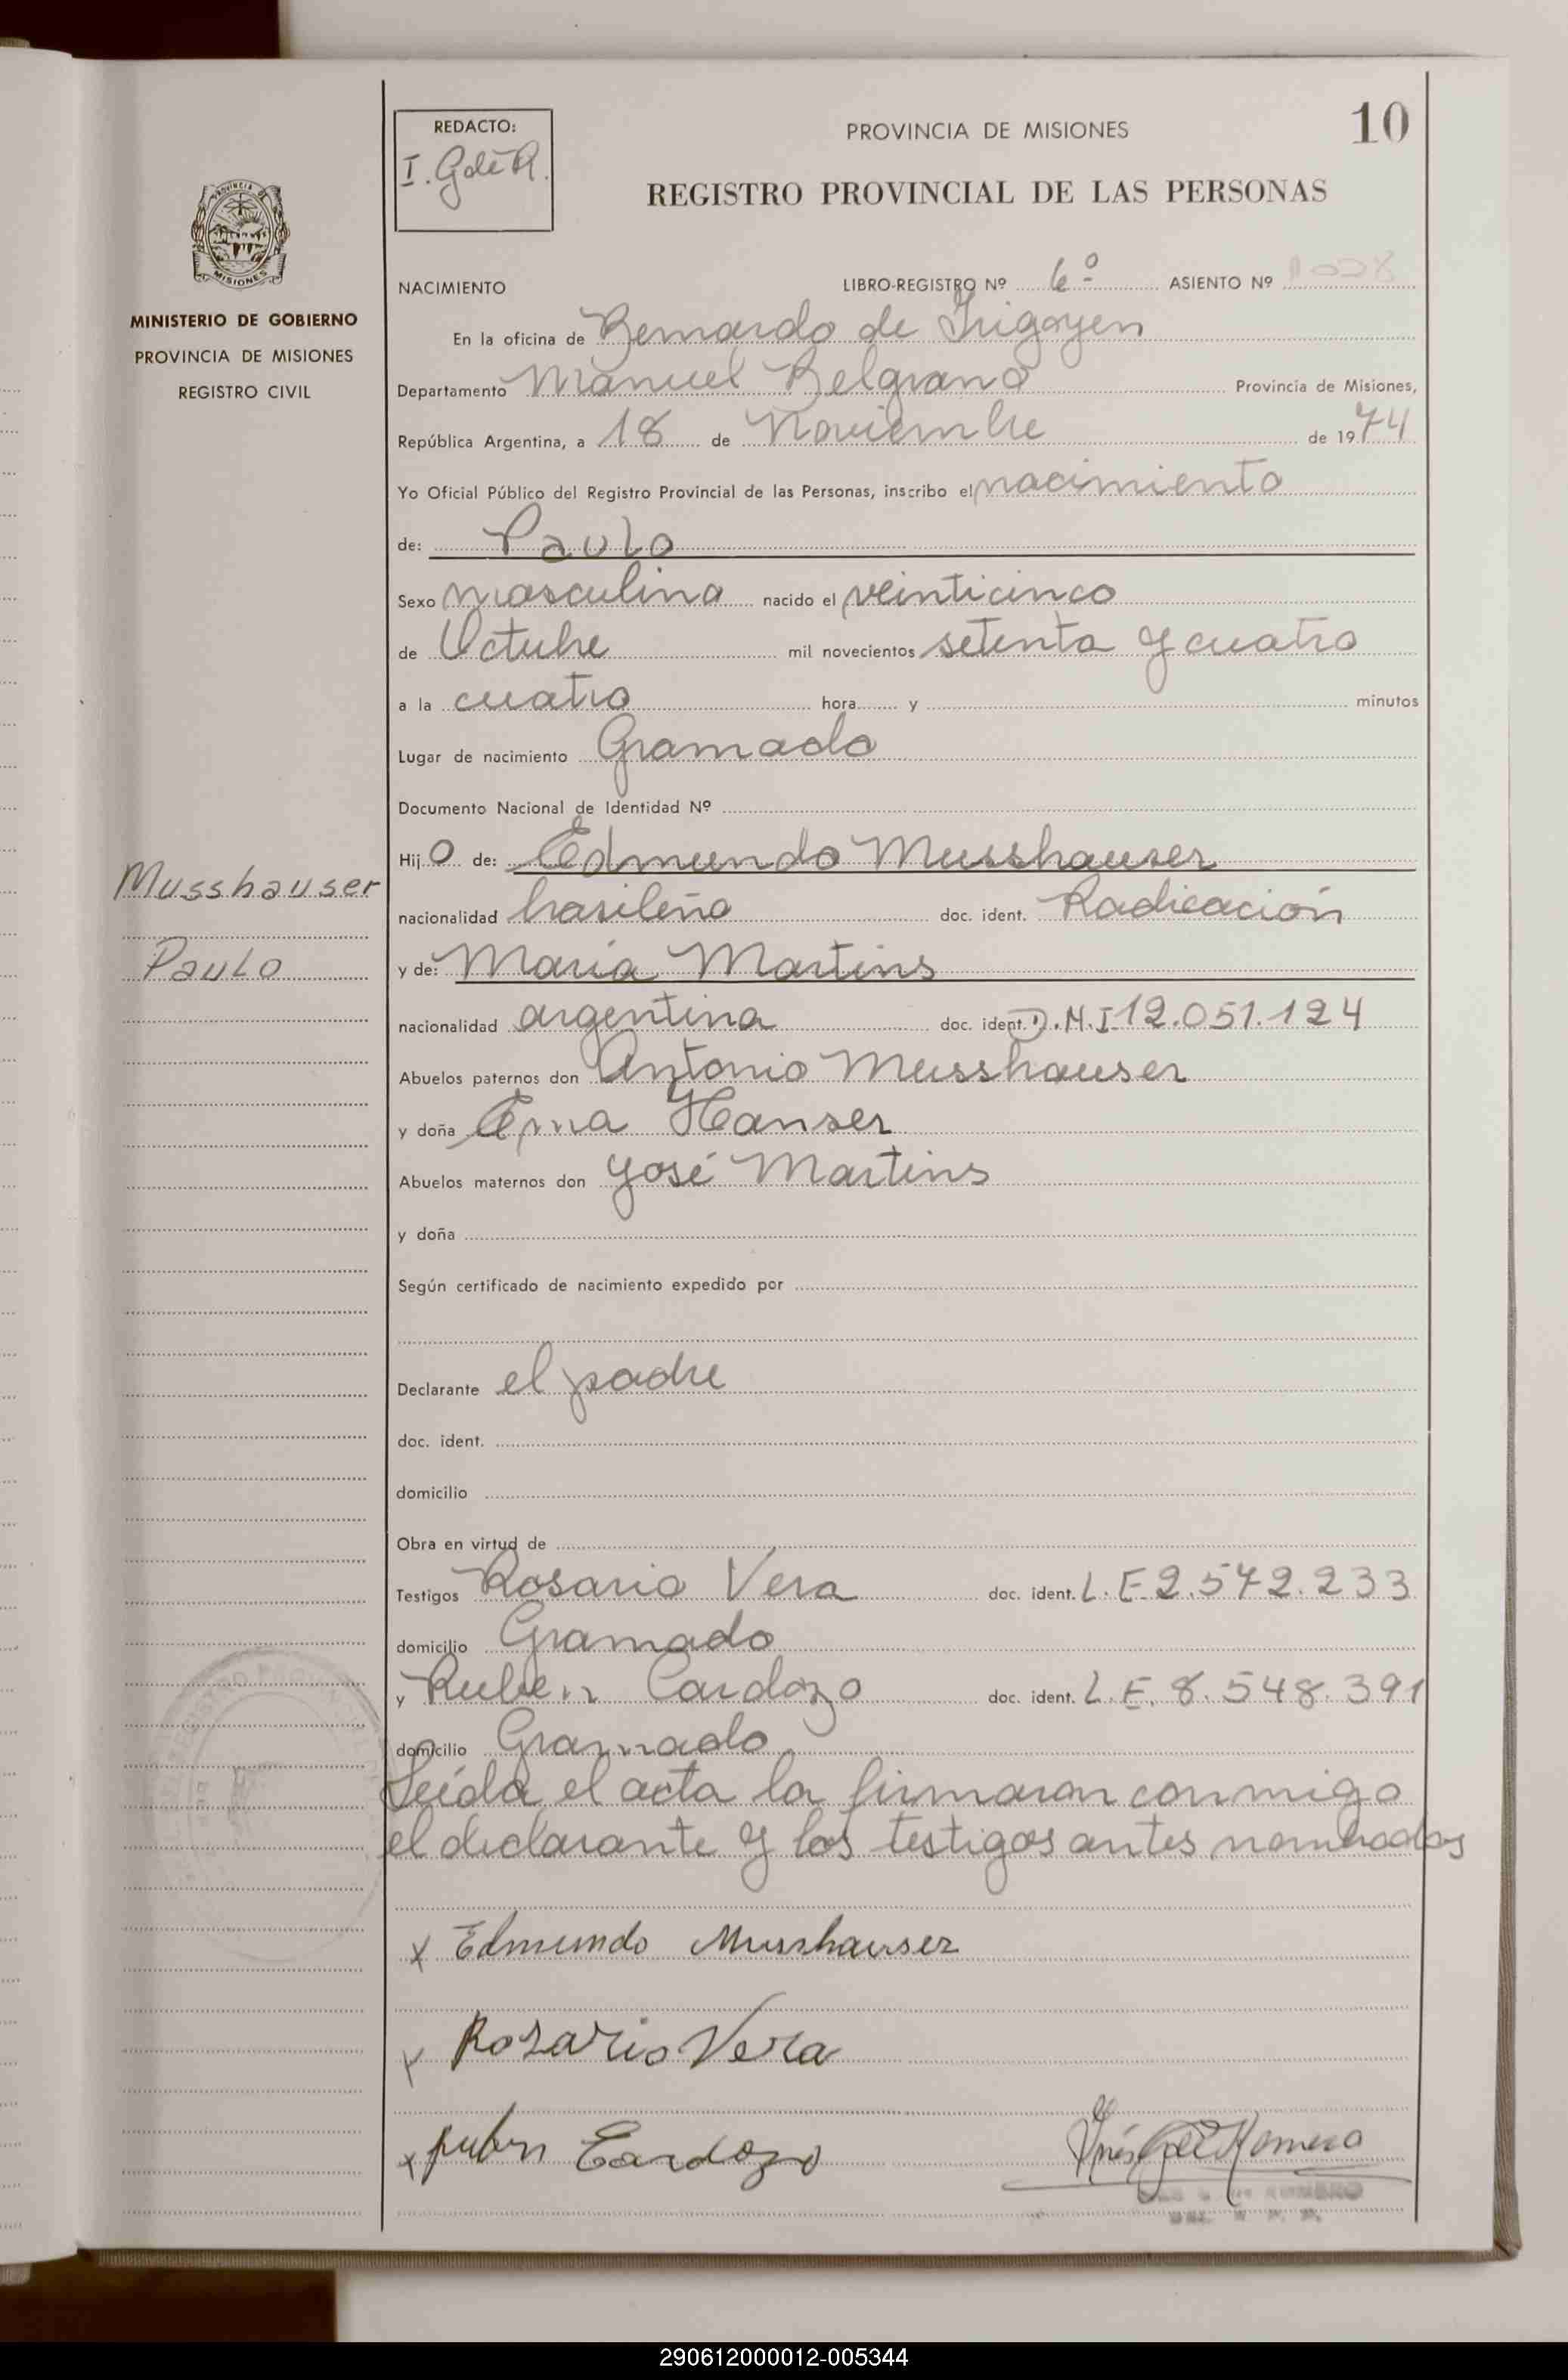 10
REDACTO:
I. G de R.
PROVINCIA DE MISIONES
REGISTRO PROVINCIAL DE LAS PERSONAS
MISIONES
MINISTERIO DE GOBIERNO
PROVINCIA DE MISIONES
REGISTRO CIVIL
NACIMIENTO LIBRO-REGISTRO Nº 6º ASIENTO Nº
En la oficina de Bernardo de Irigoyen
Departamento Manuel Belgrano Provincia de Misiones,
República Argentina, a 18 de Noviembre de 1974
Yo Oficial Público del Registro Provincial de las Personas, inscribo el nacimiento
de: Paulo
Sexo masculino nacido el veinticinco
de Octubre mil novecientos setenta y cuatro
a la cuatro hora y minutos
Lugar de nacimiento Gramado
Documento Nacional de Identidad Nº
Hijo de: Edmundo Musshauser
Musshauser
Paulo
nacionalidad brasileño doc. ident. Radicación
y de: María Martins
nacionalidad argentina doc. ident. D.N.I 12.051.124
Abuelos paternos don Antonio Musshauser
y doña Ema Hanser
Abuelos maternos don José Martins
y doña
Según certificado de nacimiento expedido por
Declarante el padre
doc. ident.
domicilio
Obra en virtud de
Testigos Rosario Vera doc. ident. L.E. 2.572.233
domicilio Gramado
y Ruben Cardozo doc. ident. L.E. 8.548.391
domicilio Gramado
Leída el acta la firmaron conmigo
el declarante y los testigos antes nombrados
x Edmundo Musshauser
x Rozario Vera
x Ruben Cardozo
Inés G de Romero
290612000012-005344